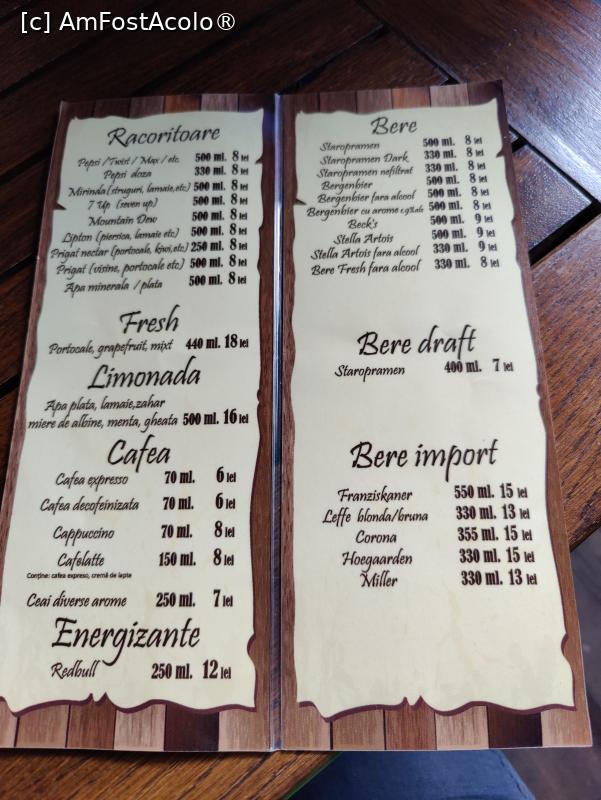 [c] AmFostAcolo®
Racoritoare
Pepsi /Twist / Max / etc. 500 ml. 8 lei
Pepsi doza 330 ml. 8 lei
Mirinda (struguri, lamaie,etc) 500 ml. 8 lei
7 Up (seven up) 500 ml. 8 lei
Mountain Dew 500 ml. 8 lei
Lipton (piersica, lamaie etc) 500 ml. 8 lei
Prigat nectar (portocale, kiwi,etc) 250 ml. 8 lei
Prigat (visine, portocale etc) 500 ml. 8 lei
Apa minerala / plata 500 ml. 8 lei
Fresh
Portocale, grapefruit, mixt 440 ml. 18 lei
Limonada
Apa plata, lamaie,zahar
miere de albine, menta, gheata 500 ml. 16 lei
Cafea
Cafea expresso 70 ml. 6 lei
Cafea decofeinizata 70 ml. 6 lei
Cappuccino 70 ml. 8 lei
Cafelatte 150 ml. 8 lei
Conține: cafea expreso, cremă de lapte
Ceai diverse arome 250 ml. 7 lei
Energizante
Redbull 250 ml. 12 lei
Bere
Staropramen 500 ml. 8 lei
Staropramen Dark 330 ml. 8 lei
Staropramen nefiltrat 330 ml. 8 lei
Bergenbier 500 ml. 8 lei
Bergenbier fara alcool 500 ml. 8 lei
Bergenbier cu arome 500 ml. 8 lei
Beck's 500 ml. 9 lei
Stella Artois 500 ml. 9 lei
Stella Artois fara alcool 330 ml. 9 lei
Bere Fresh fara alcool 330 ml. 8 lei
Bere draft
Staropramen 400 ml. 7 lei
Bere import
Franziskaner 550 ml. 15 lei
Leffe blonda/bruna 330 ml. 13 lei
Corona 355 ml. 15 lei
Hoegaarden 330 ml. 15 lei
Miller 330 ml. 13 lei